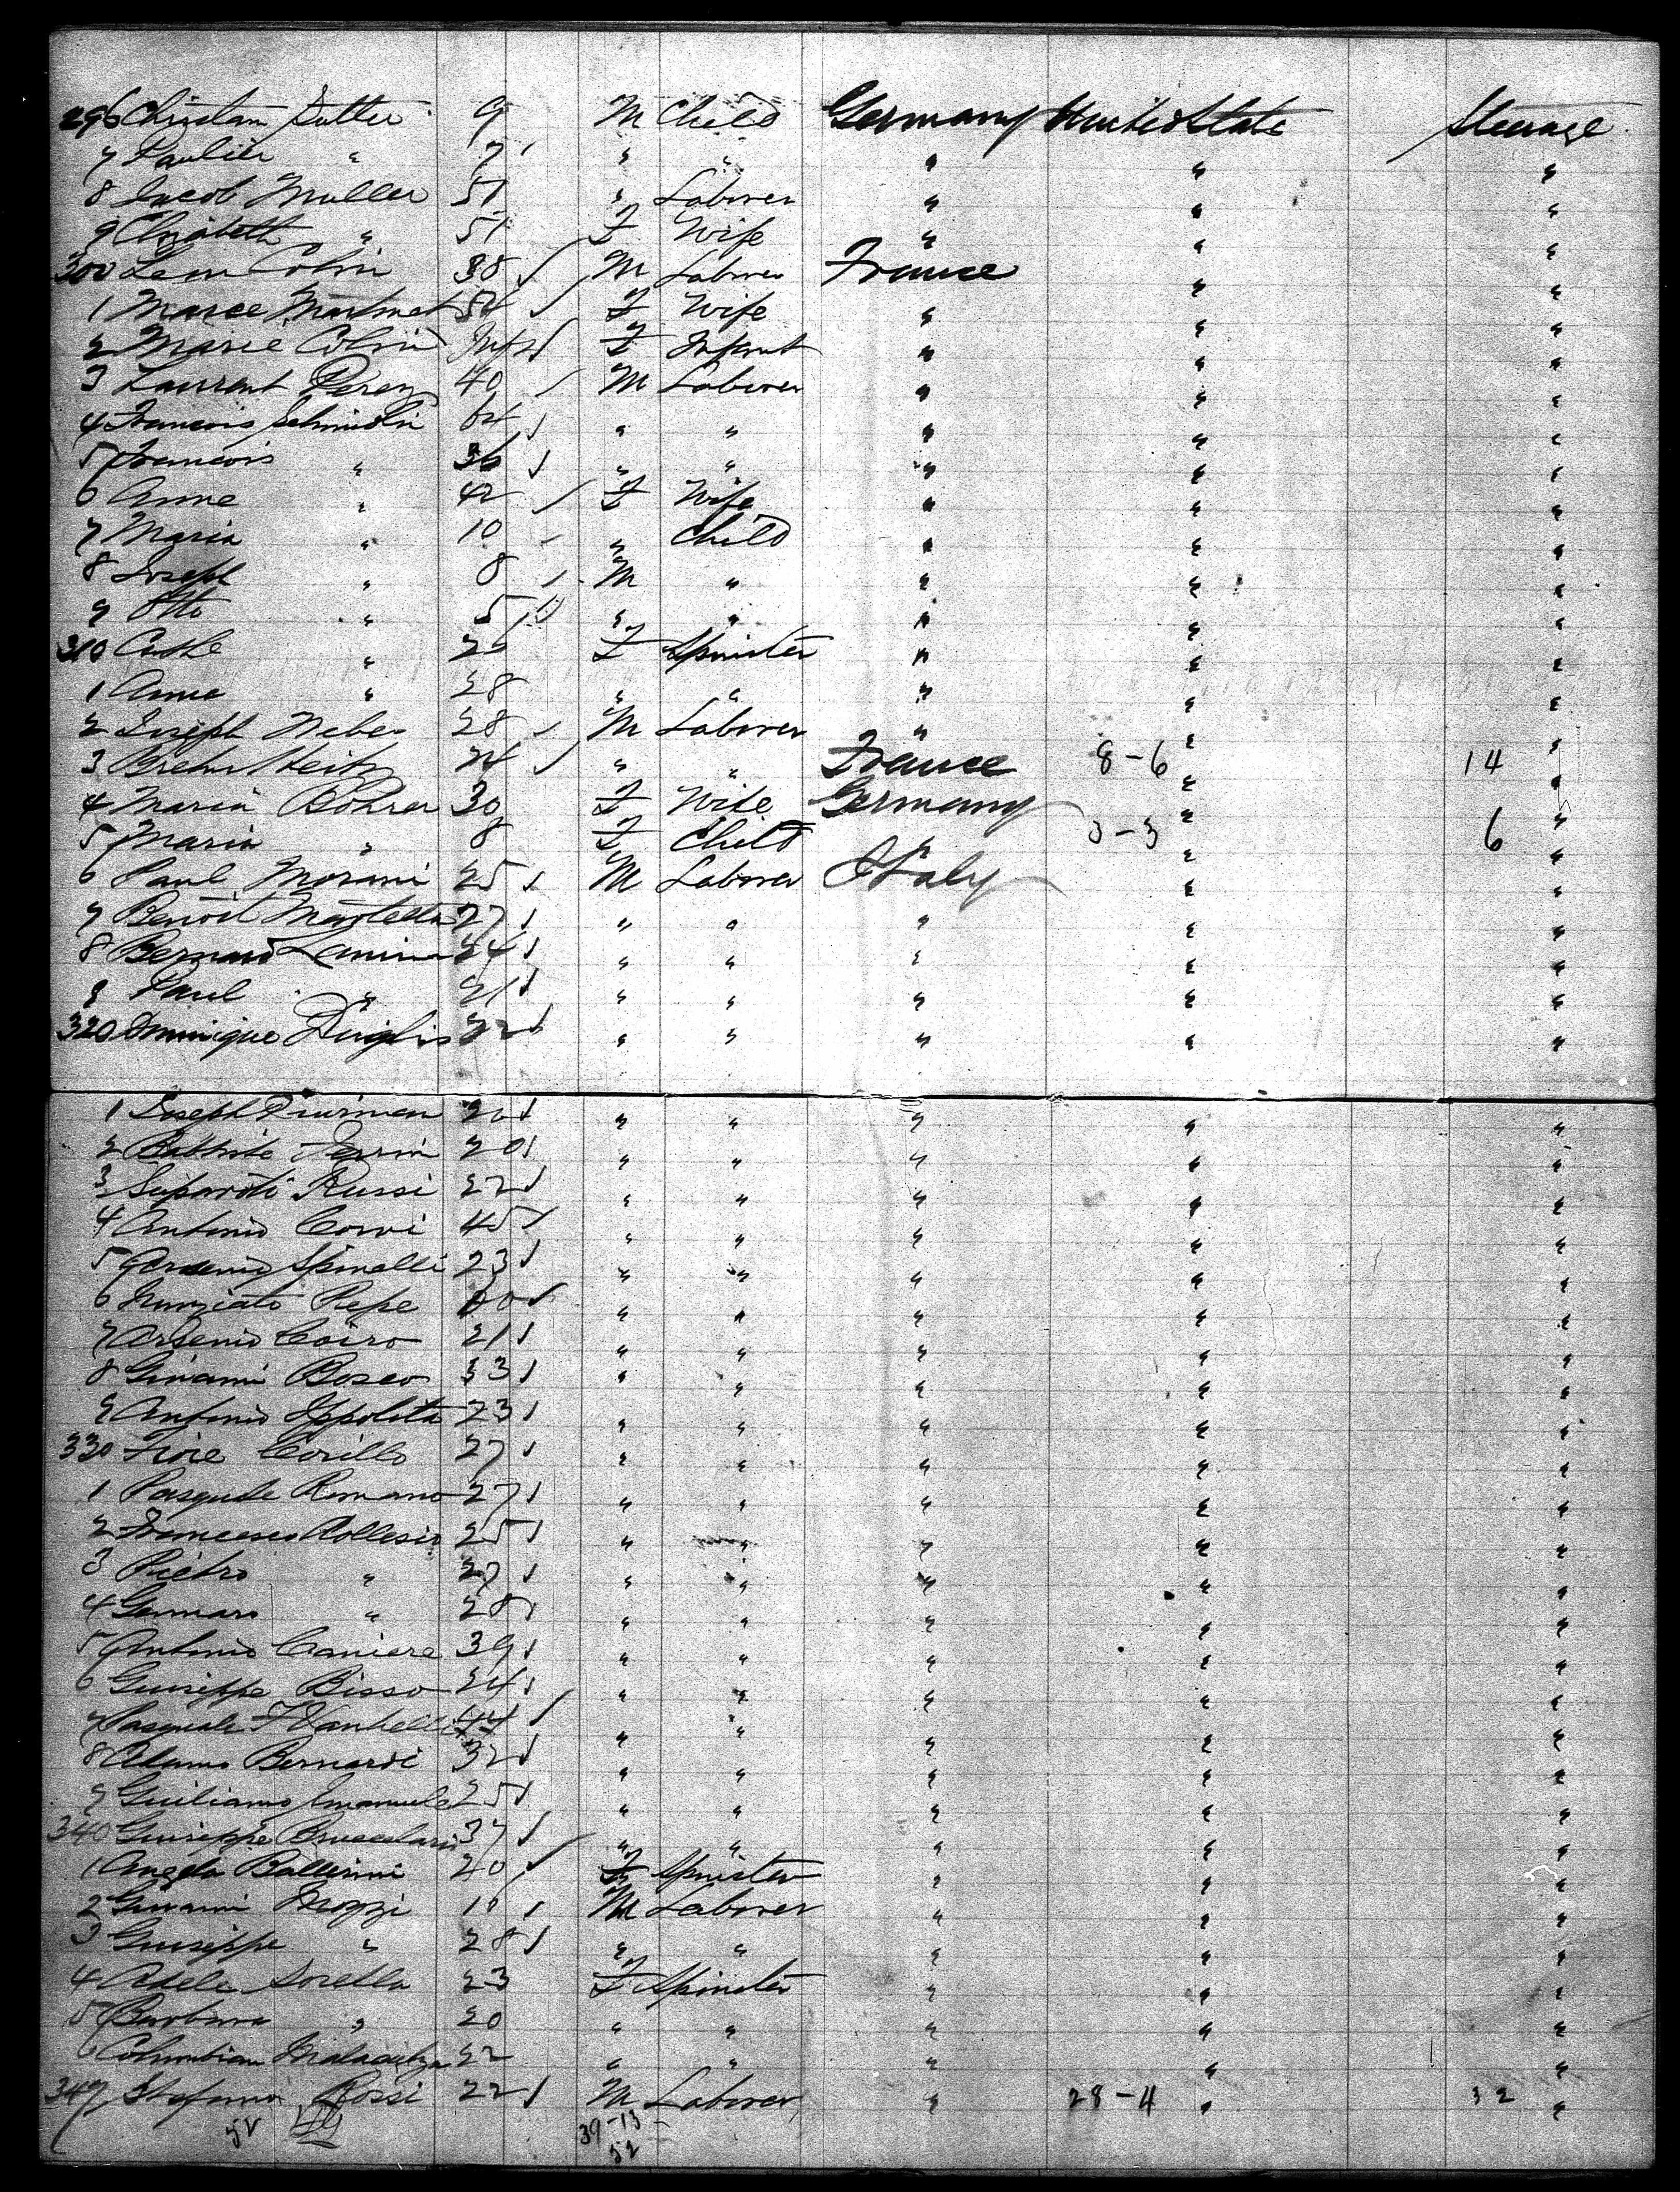 296 Christian Sutter 9 M Child Germany United State Steerage
7 " 7 " " " " "
8 Jacob Muller 51 " Laborer " " "
9 Elisabeth " 51 F Wife " " "
300 Leon Colin 38 M Laborer France " "
1 Marie F Wife " " "
2 Marie Colin Inft F Infant " " "
3 Laurent Perez 40 M Laborer " " "
4 Francois Schmidlin 64 " " " " "
5 Francois " 36 " " " " "
6 Anne " 42 F Wife " " "
7 Maria " 10 " Child " " "
8 Joseph " 8 M " " " "
9 Otto " 5 " " " " "
310 Cathe " 20 F Spinster " " "
1 Anna " 28 " " " " "
2 Joseph Weber 28 M Laborer " " "
3 24 " " France 8-6 " 14 "
4 Maria Bohrer 30 F Wife Germany " "
5 Maria " 8 F Child " 3-3 " 6 "
6 Paul Morani 25 M Laborer Italy " "
7 Benoit Martella 27 " " " " "
8 Bernard 24 " " " " "
9 Paul " 21 " " " " "
320 Dominique 22 " " " " "
1 Joseph " " " " "
2 Battiste 20 " " " " "
3 Russi 22 " " " " "
4 Antonio Corvi 45 " " " " "
5 Spinelli 23 " " " " "
6 Nunziato Pepe " " " " "
7 Arsenio Coiro 21 " " " " "
8 Giovanni Bosco 33 " " " " "
9 Antonio Ippolita 23 " " " " "
330 Fiore Corillo 27 " " " " "
1 Pasquale Romano 27 " " " " "
2 Francesco 25 " " " " "
3 Pietro " 27 " " " " "
4 Gennaro " 28 " " " " "
5 Antonio Caniere 39 " " " " "
6 Giuseppe Bisso 24 " " " " "
7 Pasquale 44 " " " " "
8 Adamo Bernardi 32 " " " " "
9 Giuliano Emanuele 25 " " " " "
340 Giuseppe 37 " " " " "
1 Angela Ballerini 20 F Spinster " " "
2 Giovanni M Laborer " " "
3 Giuseppe " 28 " " " " "
4 Adele Sorella 23 F Spinster " " "
5 Barbara " 20 " " " " "
6 22 " " " " "
347 Rossi 22 M Laborer " 28-4 " 32 "
52 39-13
52